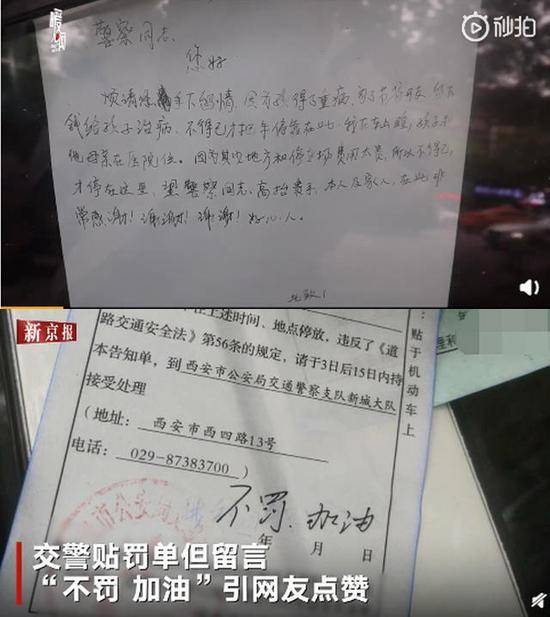 暖闻
秒拍
警察同志
您好
烦请您手下留情,因为孩得了重病,为了节约开支,所有
钱给孩子治病,不得已才把车停靠在此,我在车上睡,孩子和
他母亲在医院住。因为其他地方和停车场费用太贵,所以不得已
才停在这里,望警察同志,高抬贵手,本人及家人,在此非
常感谢!谢谢!谢谢!好心人。
此致!
新京报
在上述时间、地点停放,违反了《道
路交通安全法》第56条的规定,请于3日后15日内持
本告知单,到西安市公安局交通警察支队新城大队
接受处理
(地址:西安市西四路13号
电话:029-87383700)
不罚.加油
年 月 日
:贴于机动车上
交警贴罚单但留言
“不罚 加油”引网友点赞